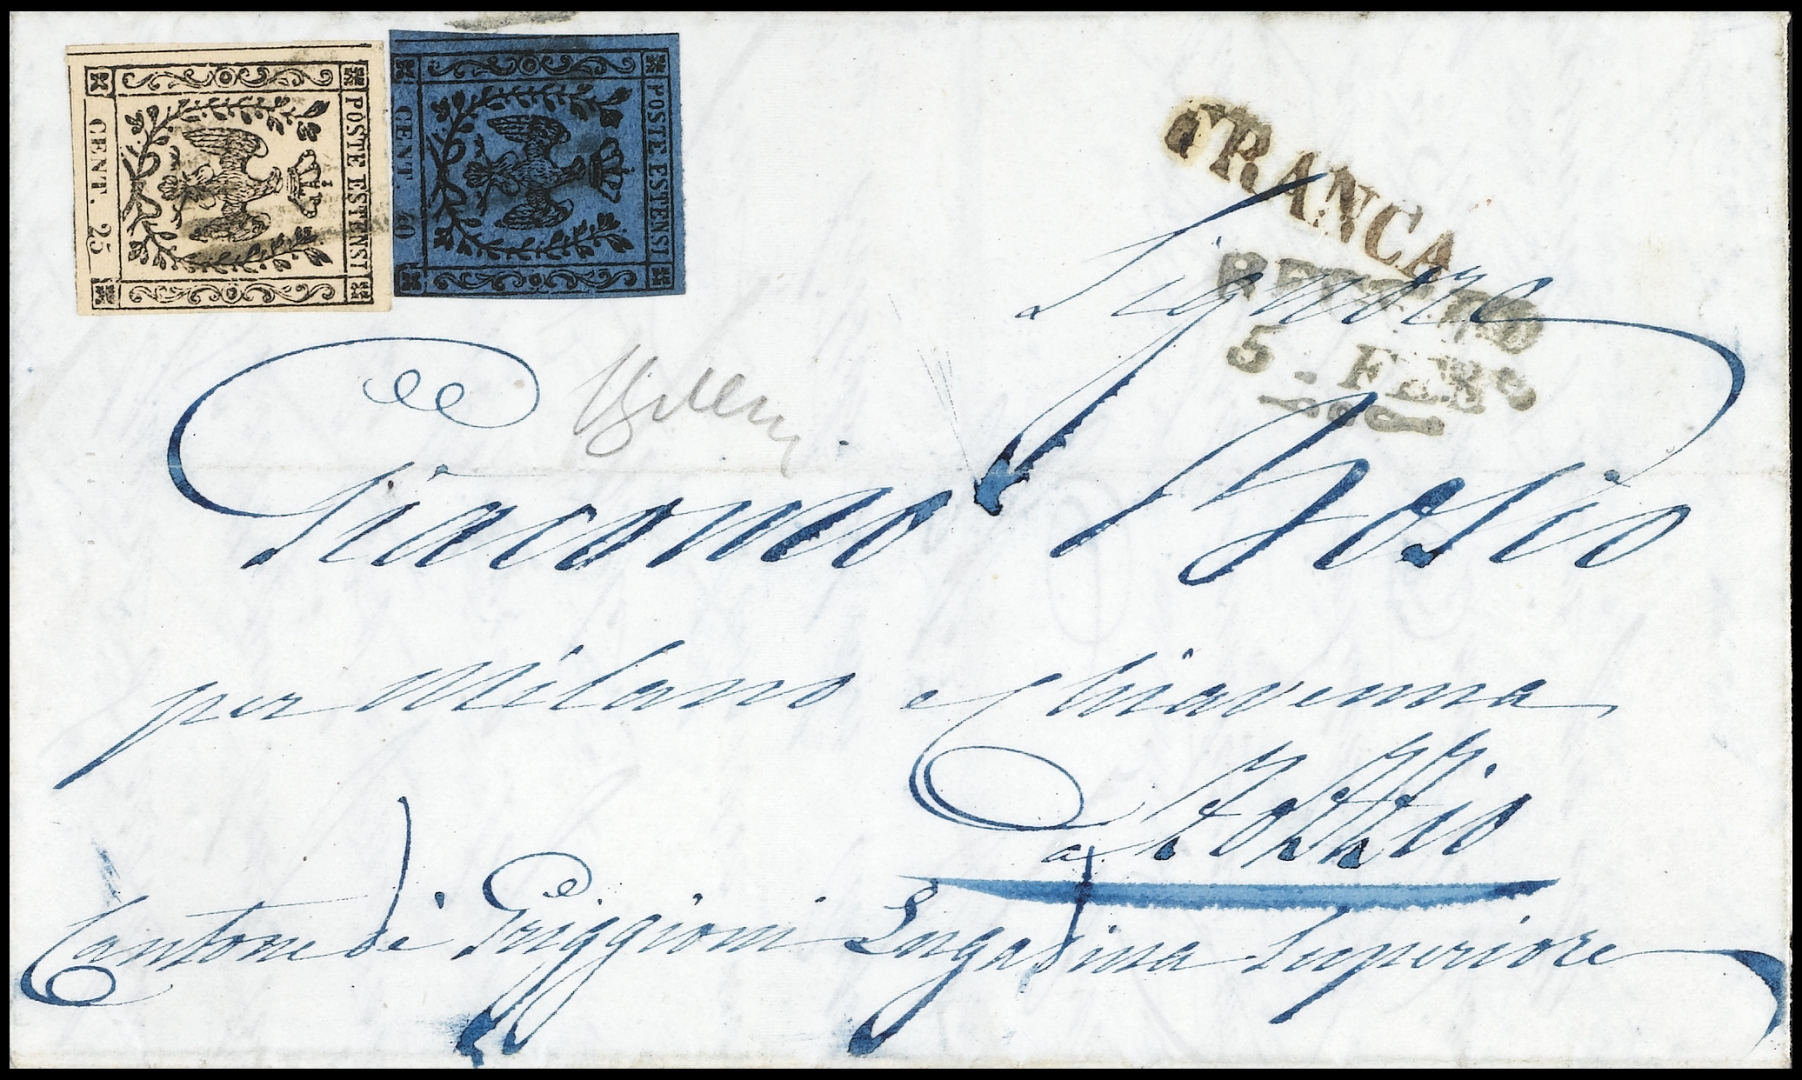 POSTE ESTENSI
CENT. 25
POSTE ESTENSI
CENT. 40
FRANCA
REGGIO
5. FEB
Signore
Giacomo Bosio
per Milano e Chiavenna
a
Cantone di Griggioni Engadina Superiore